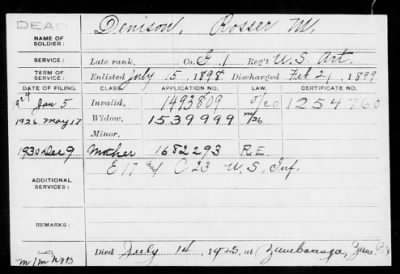 DEAD
NAME OF SOLDIER: Denison, Rosser M.
SERVICE: Late rank, Co. G, 1 Reg't U.S. Art.
TERM OF SERVICE: Enlisted July 5, 1898 Discharged Feb 21, 1899
DATE OF FILING. CLASS. APPLICATION NO. LAW. CERTIFICATE NO.
Jan 5 Invalid, 1493809 1254760
1926 May 17 Widow, 1539999
Minor,
1930 Dec 9 Mother 1682293 R.E.
ADDITIONAL SERVICES: E 17 & C 23 U.S. Inf.
REMARKS:
Died July 14, 1925, at Zamboanga,